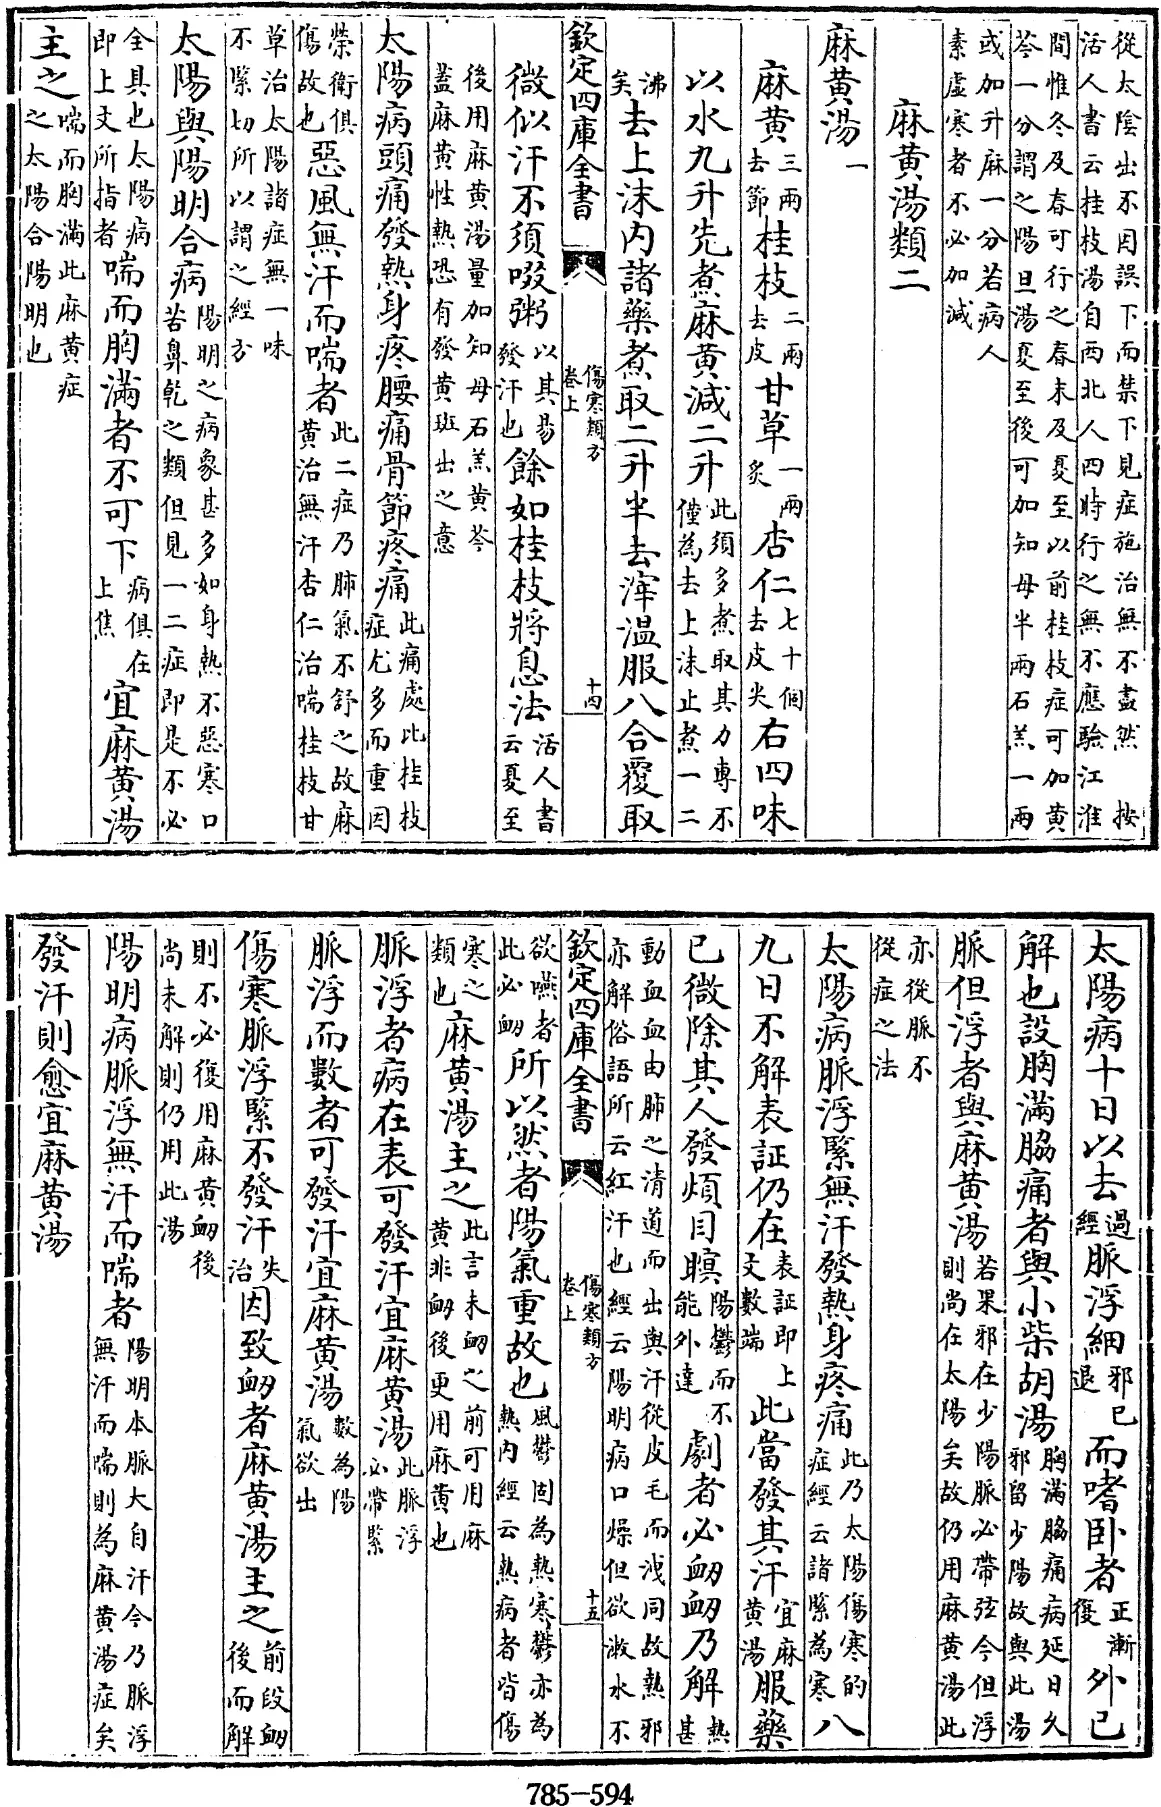 從太陰出不因誤下而禁下見症施治無不盡然　按
活人書云桂枝湯自西北人四時行之無不應驗江淮
間惟冬及春可行之春末及夏至以前桂枝症可加黄
芩一分謂之陽旦湯夏至後可加知母半兩石羔一兩
或加升麻一分若病人
素虚寒者不必加減
麻黄湯類二
麻黄湯一
麻黄三兩去節桂枝二兩去皮甘草一兩炙杏仁七十個去皮尖右四味
以水九升先煮麻黄減二升此須多煮取其力專不僅為去上沫止煮一二
沸矣去上沫内諸藥煮取二升半去滓温服八合覆取
欽定四庫全書　傷寒類方卷上　十四
微似汗不須啜粥以其易發汗也餘如桂枝將息法活人書云夏至
後用麻黄湯量加知母石羔黄芩
蓋麻黄性熱恐有發黄斑出之意
太陽病頭痛發熱身疼腰痛骨節疼痛此痛處比桂枝症尤多而重因
榮衛俱傷故也惡風無汗而喘者此二症乃肺氣不舒之故麻黄治無汗杏仁治喘桂枝甘
草治太陽諸症無一味
不緊切所以謂之經方
太陽與陽明合病陽明之病象甚多如身熱不惡寒口苦鼻乾之類但見一二症即是不必
全具也太陽病即上文所指者喘而胸滿者不可下病俱在上焦宜麻黄湯
主之喘而胸滿此麻黄症之太陽合陽明也
太陽病十日以去過經脈浮細邪已退而嗜卧者正漸復外已
解也設胸滿脇痛者與小柴胡湯胸滿脇痛病延日久邪留少陽故與此湯
脈但浮者與麻黄湯若果邪在少陽脈必帶弦今但浮則尚在太陽矣故仍用麻黄湯此
亦從脈不
從症之法
太陽病脈浮緊無汗發熱身疼痛此乃太陽傷寒的症經云諸緊為寒八
九日不解表証仍在表証即上文數端此當發其汗宜麻黄湯服藥
已微除其人發煩目瞑陽鬱而不能外達劇者必衂衂乃解熱甚
動血血由肺之清道而出與汗從皮毛而洩同故熱邪
亦解俗語所云紅汗也經云陽明病口燥但欲漱水不
欽定四庫全書　傷寒類方卷上　十五
欲嚥者此必衂所以然者陽氣重故也風鬱固為熱寒鬱亦為熱内經云熱病者皆傷
寒之類也麻黄湯主之此言未衂之前可用麻黄非衂後更用麻黄也
脈浮者病在表可發汗宜麻黄湯此脈浮必帶緊
脈浮而數者可發汗宜麻黄湯數為陽氣欲出
傷寒脈浮緊不發汗失治因致衂者麻黄湯主之前段衂後而解
則不必復用麻黄衂後
尚未解則仍用此湯
陽明病脈浮無汗而喘者陽明本脈大自汗今乃脈浮無汗而喘則為麻黄湯症矣
發汗則愈宜麻黄湯
785-594